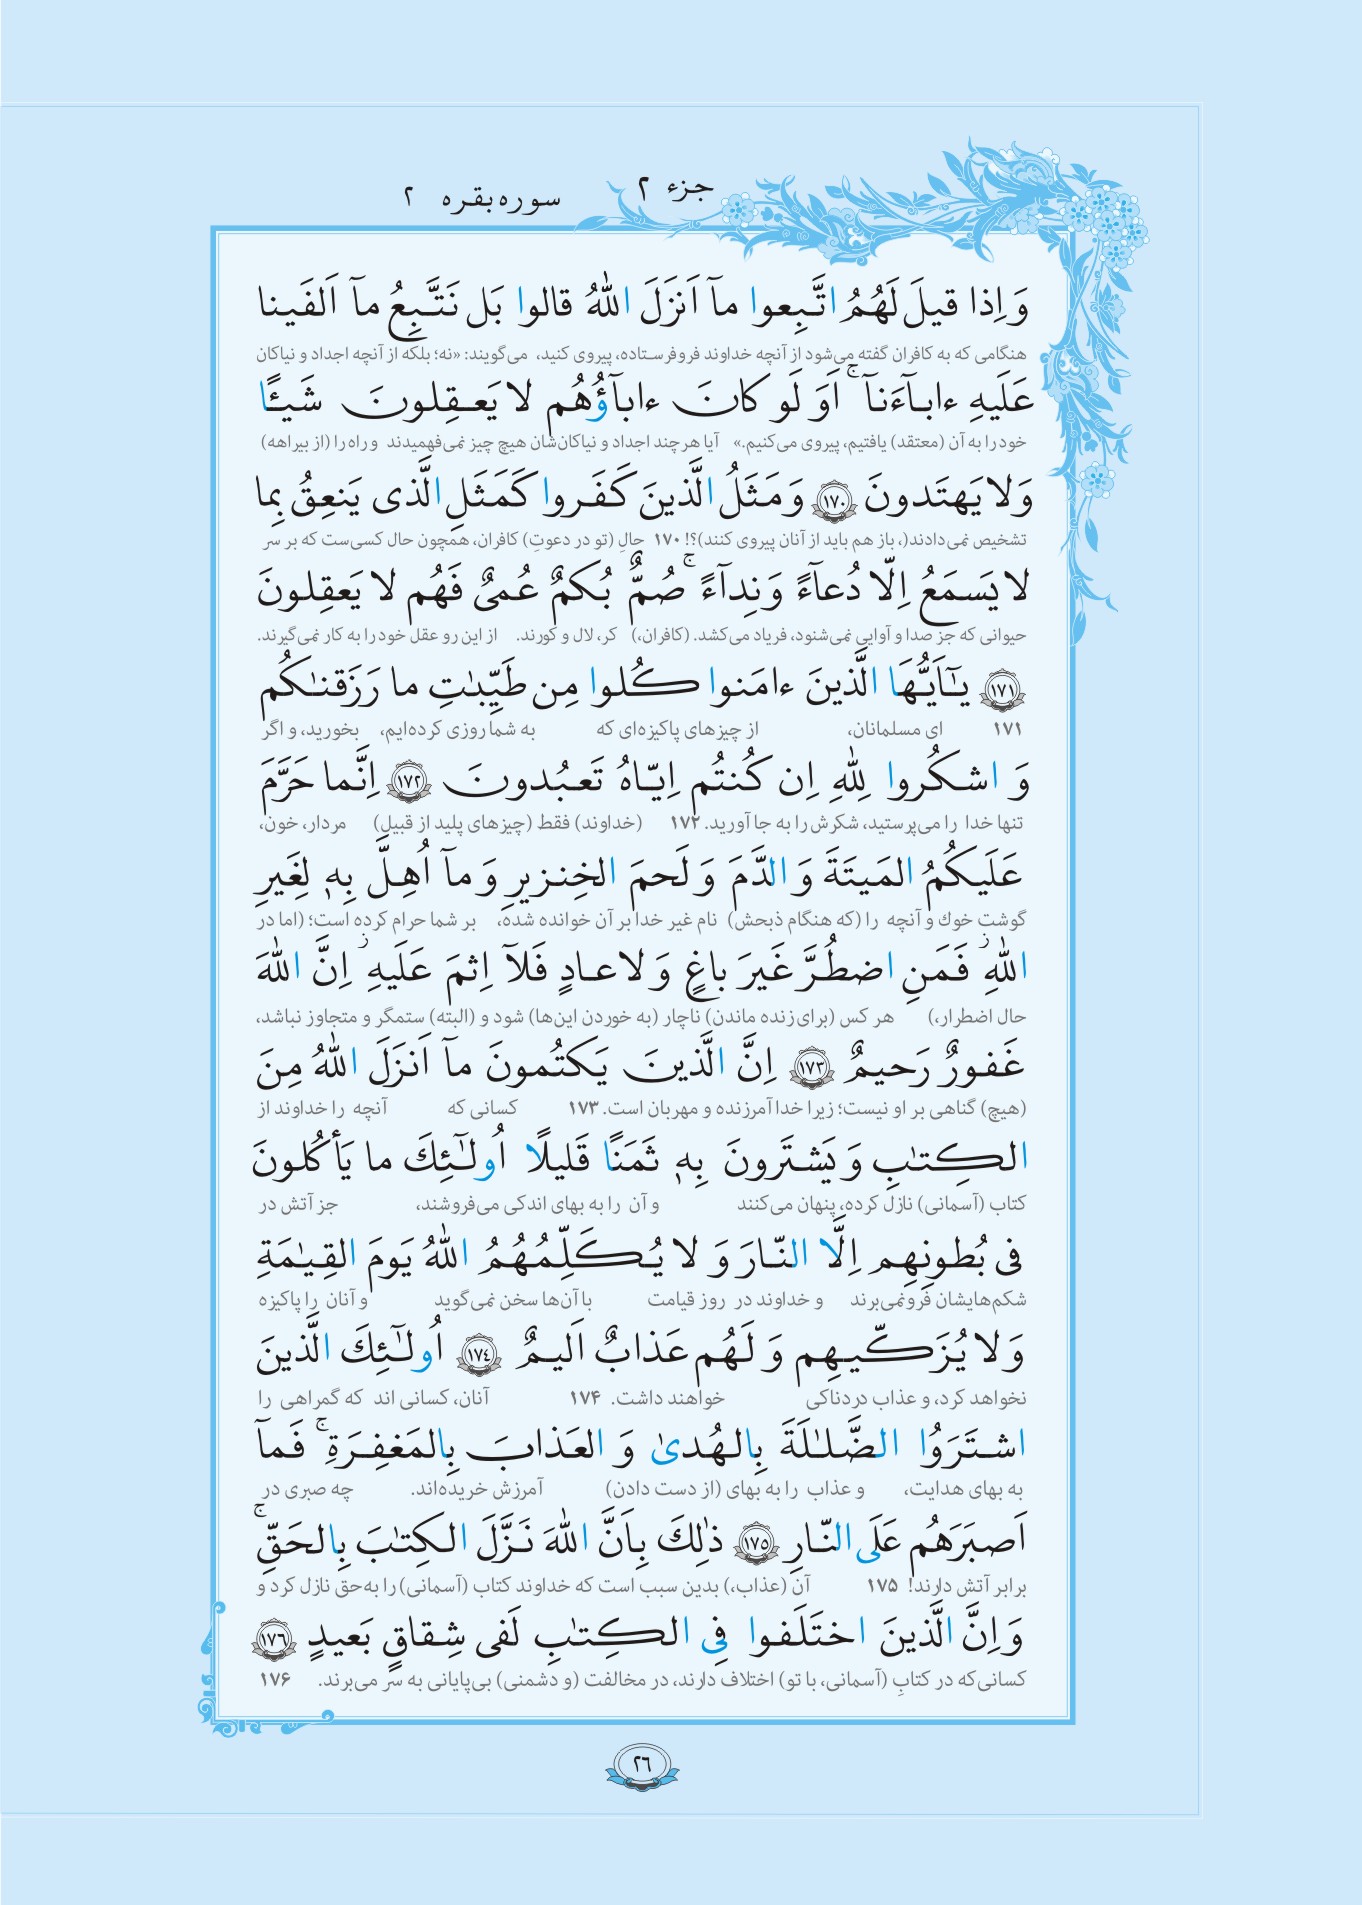 جزء ۲ سوره بقره ۲
وَ اِذا قیلَ لَهُمُ اتَّبِعوا مآ اَنزَلَ اللّٰهُ قالوا بَل نَتَّبِعُ مآ اَلفَینا
هنگامی که به کافران گفته می‌شود از آنچه خداوند فروفرستاده، پیروی کنید، می‌گویند: «نه؛ بلکه از آنچه اجداد و نیاکان
عَلَیهِ ءابآءَنآ ۚ اَوَ لَو کانَ ءابآؤُهُم لا یَعقِلونَ شَیئًا
خود را به آن (معتقد) یافتیم، پیروی می‌کنیم.» آیا هرچند اجداد و نیاکان‌شان هیچ چیز نمی‌فهمیدند و راه را (از بیراهه)
وَ لا یَهتَدونَ ﴿۱۷۰﴾ وَ مَثَلُ الَّذینَ کَفَروا کَمَثَلِ الَّذی یَنعِقُ بِما
تشخیص نمی‌دادند(، باز هم باید از آنان پیروی کنند)؟! ۱۷۰ حالِ (تو در دعوتِ) کافران، همچون حال کسی‌ست که بر سر
لا یَسمَعُ اِلّا دُعآءً وَ نِدآءً ۚ صُمٌّ بُکمٌ عُمیٌ فَهُم لا یَعقِلونَ
حیوانی که جز صدا و آوایی نمی‌شنود، فریاد می‌کشد. (کافران،) کر، لال و کورند. از این رو عقل خود را به کار نمی‌گیرند.
﴿۱۷۱﴾ یـٰٓاَیُّهَا الَّذینَ ءامَنوا کُلوا مِن طَیِّبـٰتِ ما رَزَقنـٰکُم
۱۷۱ ای مسلمانان، از چیزهای پاکیزه‌ای که به شما روزی کرده‌ایم، بخورید، و اگر
وَ اشکُروا لِلّٰهِ اِن کُنتُم اِیّاهُ تَعبُدونَ ﴿۱۷۲﴾ اِنَّما حَرَّمَ
تنها خدا را می‌پرستید، شکرش را به جا آورید. ۱۷۲ (خداوند) فقط (چیزهای پلید از قبیل) مردار، خون،
عَلَیکُمُ المَیتَةَ وَ الدَّمَ وَ لَحمَ الخِنزیرِ وَ مآ اُهِلَّ بِهٖ لِغَیرِ
گوشت خوک و آنچه را (که هنگام ذبحش) نام غیر خدا بر آن خوانده شده، بر شما حرام کرده است؛ (اما در
اللّٰهِ ز فَمَنِ اضطُرَّ غَیرَ باغٍ وَ لا عادٍ فَلآ اِثمَ عَلَیهِ ز اِنَّ اللّٰهَ
حال اضطرار،) هر کس (برای زنده ماندن) ناچار (به خوردن این‌ها) شود و (البته) ستمگر و متجاوز نباشد،
غَفورٌ رَحیمٌ ﴿۱۷۳﴾ اِنَّ الَّذینَ یَکتُمونَ مآ اَنزَلَ اللّٰهُ مِنَ
(هیچ) گناهی بر او نیست؛ زیرا خدا آمرزنده و مهربان است. ۱۷۳ کسانی که آنچه را خداوند از
الکِتـٰبِ وَ یَشتَرونَ بِهٖ ثَمَنًا قَلیلًا اُولـٰٓئِكَ ما یَأکُلونَ
کتاب (آسمانی) نازل کرده، پنهان می‌کنند و آن را به بهای اندکی می‌فروشند، جز آتش در
فی بُطونِهِم اِلَّا النّارَ وَ لا یُکَلِّمُهُمُ اللّٰهُ یَومَ القِیـٰمَةِ
شکم‌هایشان فرونمی‌برند و خداوند در روز قیامت با آن‌ها سخن نمی‌گوید و آنان را پاکیزه
وَ لا یُزَکّیهِم وَ لَهُم عَذابٌ اَلیمٌ ﴿۱۷٤﴾ اُولـٰٓئِكَ الَّذینَ
نخواهد کرد، و عذاب دردناکی خواهند داشت. ۱۷۴ آنان، کسانی اند که گمراهی را
اشتَرَوُا الضَّلـٰلَةَ بِالهُدیٰ وَ العَذابَ بِالمَغفِرَةِ ۚ فَمآ
به بهای هدایت، و عذاب را به بهای (از دست دادن) آمرزش خریده‌اند. چه صبری در
اَصبَرَهُم عَلَی النّارِ ﴿۱۷۵﴾ ذٰلِكَ بِاَنَّ اللّٰهَ نَزَّلَ الکِتـٰبَ بِالحَقِّ ۚ
برابر آتش دارند! ۱۷۵ آن (عذاب،) بدین سبب است که خداوند کتاب (آسمانی) را به‌حق نازل کرد و
وَ اِنَّ الَّذینَ اختَلَفوا فِی الکِتـٰبِ لَفی شِقاقٍ بَعیدٍ ﴿۱۷٦﴾
کسانی‌که در کتابِ (آسمانی، با تو) اختلاف دارند، در مخالفت (و دشمنی) بی‌پایانی به سر می‌برند. ۱۷۶
۲٦